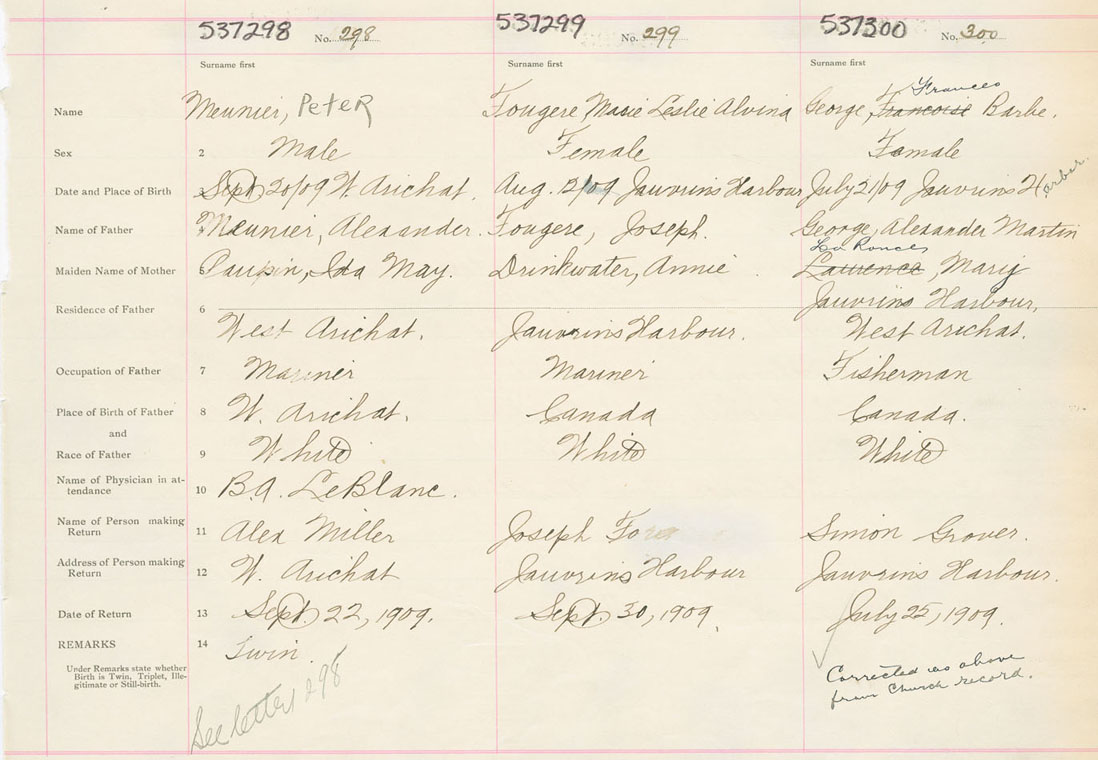 537298 No. 298 537299 No. 299 537300 No. 300
Surname first Surname first Surname first
Frances
Name Meunier, Peter Fougere, Marie Leslie Alvina George, Francoise Barbe.
Sex 2 Male Female Female
Date and Place of Birth 3 Sept 20/09 W. Arichat. Aug. 2/09 Jauvrins Harbour July 21/09 Jauvrins Harber
Name of Father 4 Meunier, Alexander. Fougere, Joseph. George, Alexander Martin
La Ronces
Maiden Name of Mother 5 Ida May. Drinkwater, Annie Laurence, Mary
Jauvrins Harbour,
Residence of Father 6 West Arichat. Jauvrins Harbour. West Arichat.
Occupation of Father 7 Mariner Mariner Fisherman
Place of Birth of Father 8 W. Arichat. Canada Canada.
and
Race of Father 9 White White White
Name of Physician in at-
tendance 10 B.A. LeBlanc.
Name of Person making
Return 11 Alex Miller Joseph Simon Grover.
Address of Person making
Return 12 W. Arichat Jauvrins Harbour Jauvrins Harbour.
Date of Return 13 Sept. 22, 1909. Sept. 30, 1909. July 25, 1909.
REMARKS 14 Twin.
Under Remarks state whether
Birth is Twin, Triplet, Ille-
gitimate or Still-birth.
See letter 298
Corrected as above
from Church record.